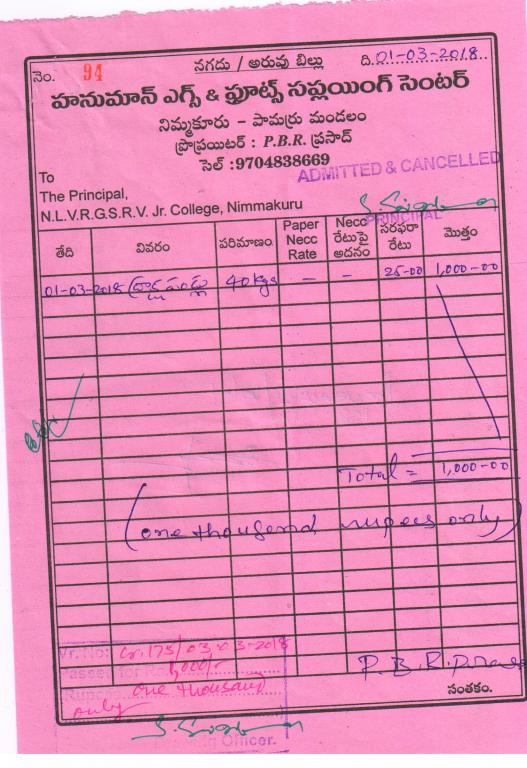 నగదు / అరువు బిల్లు
నెం. 94
ది. 01-03-2018
హనుమాన్ ఎగ్స్ & ఫ్రూట్స్ సప్లయింగ్ సెంటర్
నిమ్మకూరు - పామర్రు మండలం
ప్రొప్రయిటర్ : P.B.R. ప్రసాద్
సెల్ :9704838669
ADMITTED & CANCELLED
To
The Principal,
N.L.V.R.G.S.R.V. Jr. College, Nimmakuru
PRINCIPAL
తేది వివరం పరిమాణం Paper Necc Rate Necc రేటుపై అదనం సరఫరా రేటు మొత్తం
01-03-2018 ద్రాక్షపండ్లు 40 kgs — — 25-00 1,000-00
Total = 1,000-00
(one thousand rupees only)
Vr. No: Cr. 175/03.03-2018
Passed for Rs. 1,000/-
Rupees one thousand
only
P. B. R. Prasad
సంతకం.
Officer.